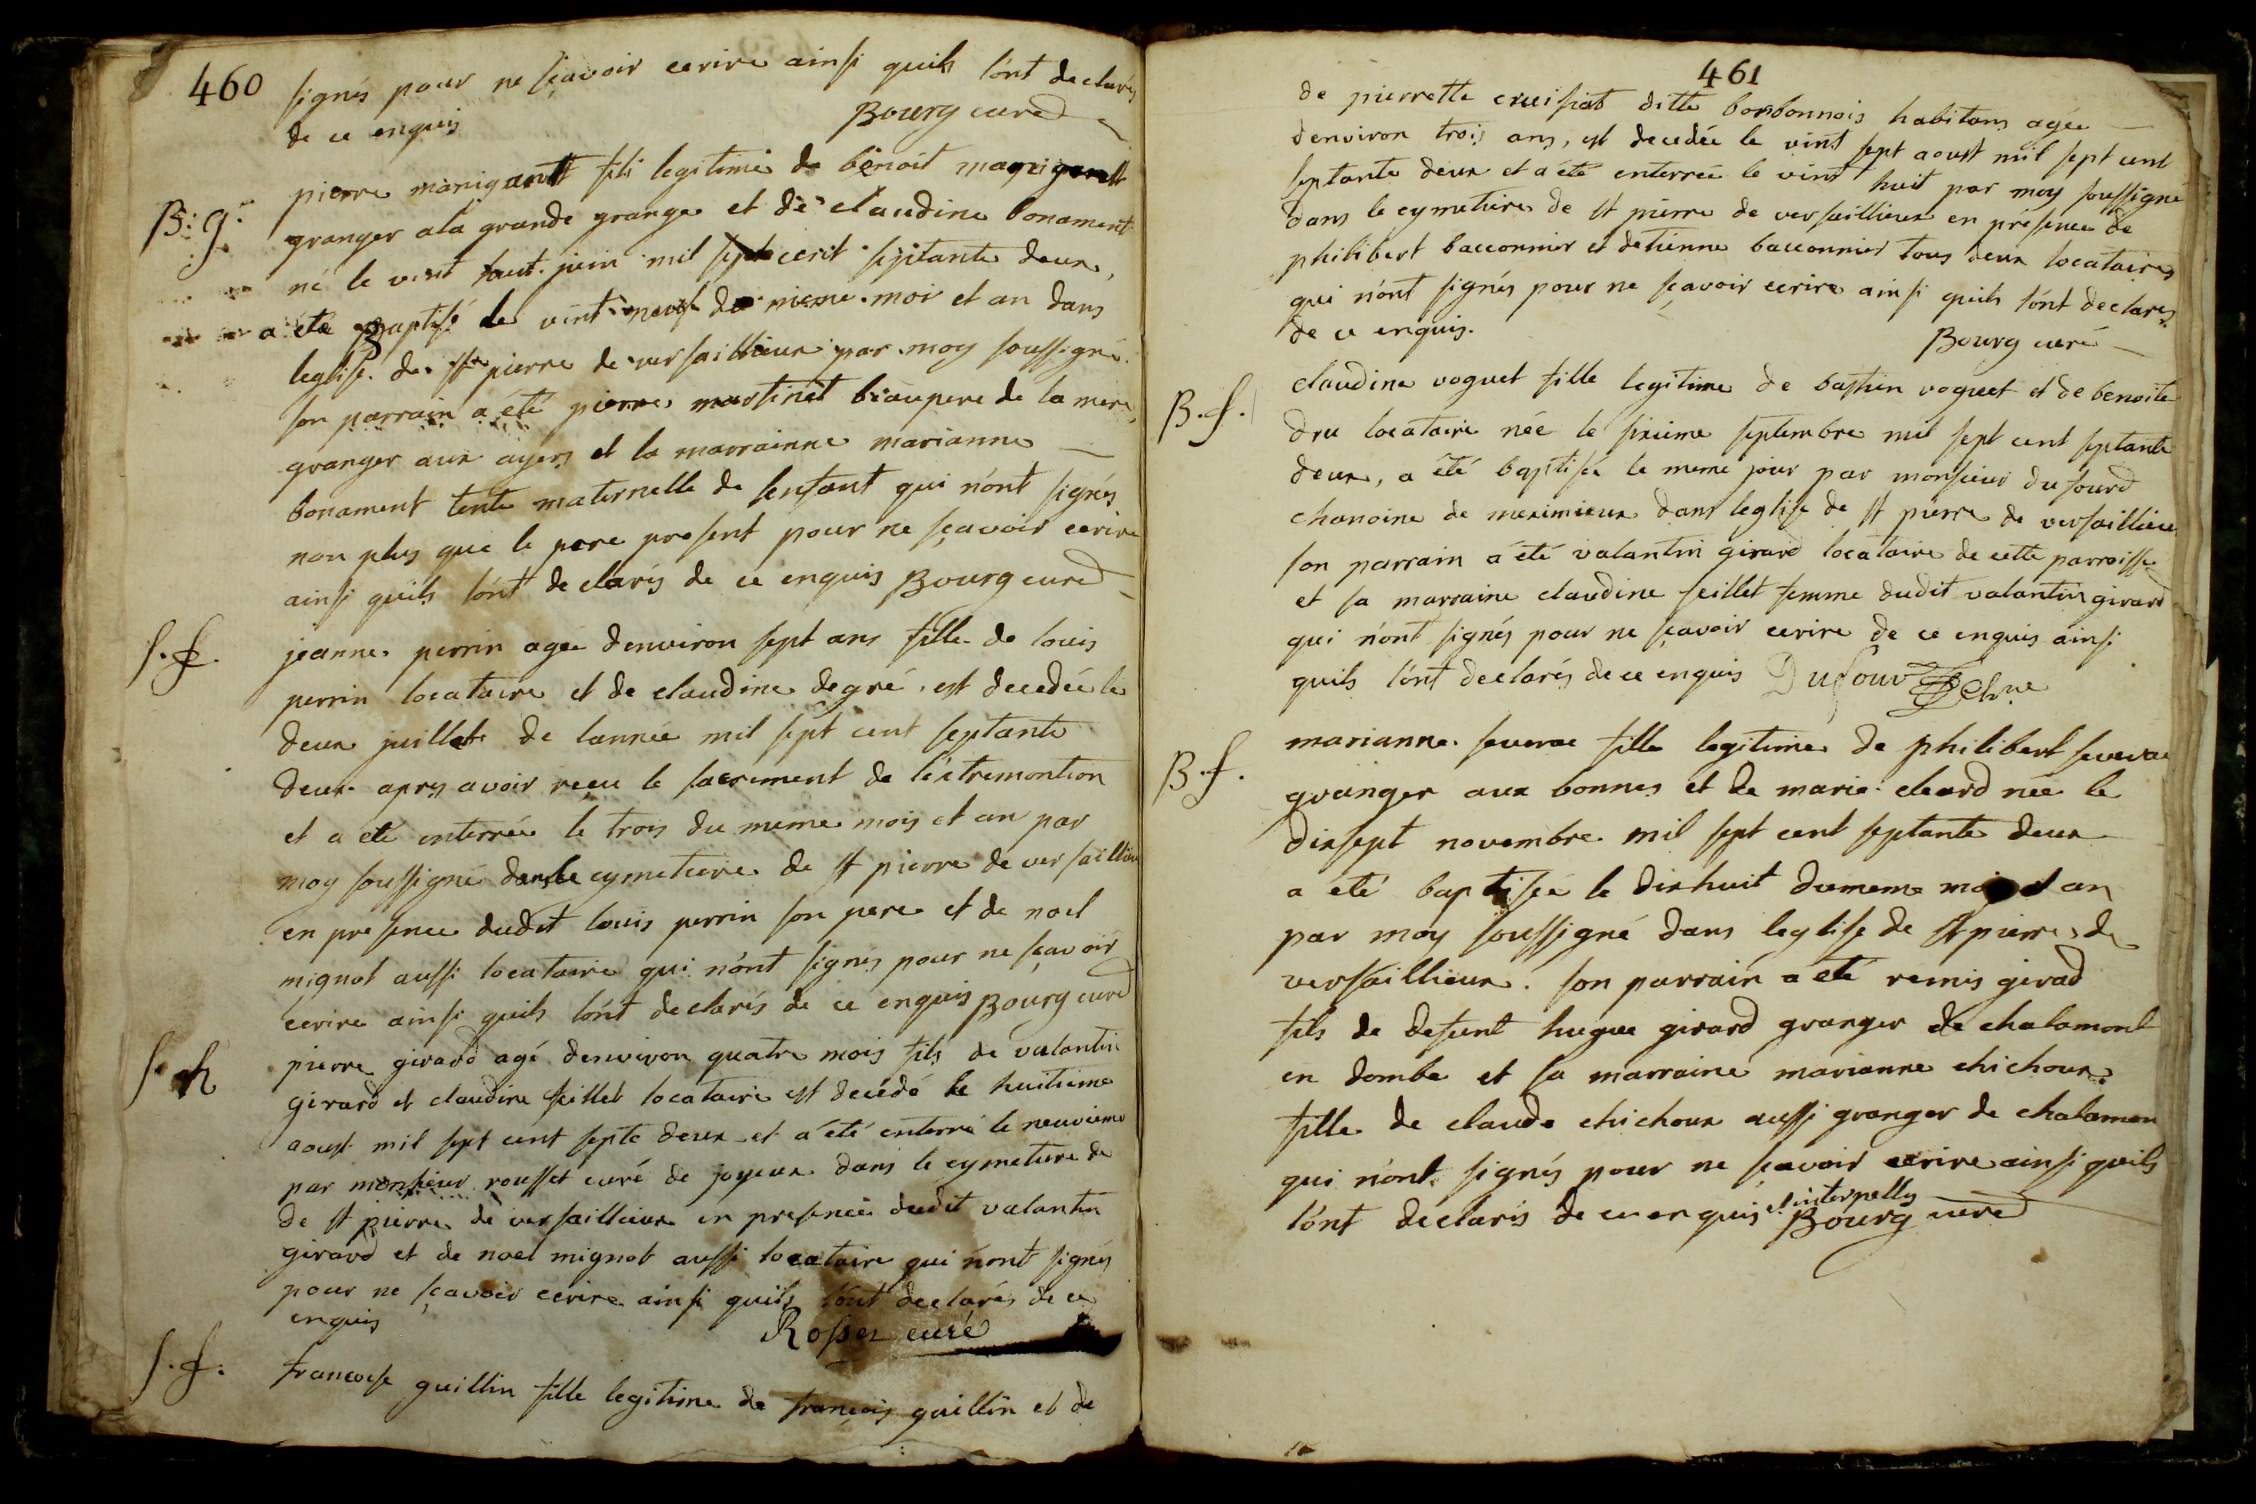 460
signés pour ne sçavoir ecrire ainsi quils lónt declarés
de ce enquis
Bourg curé
B: g.
pierre manigantt fils legitime de benoit
granger a la grande grange et de claudine bonament
né le vint juin mil sept cent septante deux,
a été Baptisé le vint neuf du meme moi et an dans
leglise de st pierre de versaillieux par moy soussigné.
son parrain a été pierre martinét beaupere de la mere,
granger aux ayers et la marrainne marianne
bonament tente maternelle de lenfant qui nónt signés
non plus que le pere present pour ne sçavoir ecrire
ainsi quils lónt declarés de ce enquis Bourg curé
s. f.
jeanne perrin agée denviron sept ans fille de louis
perrin locataire et de claudine degré, est decedée le
deux juillet de lannée mil sept cent septante
deux apres avoir reçu le sacrement de léxtremontion
et a eté enterrée le trois du meme mois et an par
moy soussigné dans le cymetiere de st pierre de versaillieux
en presence dudit louis perrin son pere et de noel
mignot aussi locataire qui nónt signés pour ne sçavoir
ecrire ainsi quils lónt declarés de ce enquis Bourg curé
s.
pierre girard agé denviron quatre mois fils de valantin
girard et claudine seillet locataire est decédé le huitieme
aoust mil sept cent septe deux et a été enterré le neuvieme
par monsieur rousset curé de joyeux dans le cymetiere de
de st pierre de versaillieux en presence dudit valantin
girard et de noel mignot aussi locataire qui nónt signés
pour ne sçavoir ecrire ainsi quils lónt declarés de ce
enquis
Rosset curé
s. f.
francoise guillin fille legitime de françois guillin et de
461
de pierrette cruisiat ditte borbonnois habitans agée
denviron trois ans, est decedée le vint sept aoust mil sept cent
septante deux et a été enterrée le vint huit par moy soussigné
dans le cymetiere de st pierre de versaillieux en présence de
philibert bacconnier et detienne bacconnier tous deux locataires
qui nónt signés pour ne sçavoir ecrire ainsi quils lónt declarés
de ce enquis.
Bourg curé
B. f.
claudine voguet fille legitime de bastien voguet et de benoite
dru locataire née le sixieme septembre mil sept cent septante
deux, a été baptisée le meme jour par monsieur dufourd
chanoine de meximieux dans leglise de st pierre de versaillieux
son parrain a été valantin girard locataire de cette parroisse
et sa marraine claudine seillet femme dudit valantin girard
qui nónt signés pour ne sçavoir ecrire de ce enquis ainsi
quils lónt declarés de ce enquis Dufour chne
B. f.
marianne severac fille legitime de philibert severac
granger aux bonnes et de marie chard née le
dixsept novembre mil sept cent septante deux
a été baptisée le dixhuit du meme moi et an
par moy soussigné dans leglise de st pierre de
versaillieux. son parrain a eté remis girad
fils de defunt hugue girard granger de chalamont
en dombe et sa marraine marianne chichoux
fille de claude chichoux aussi granger de chalamon
qui nónt signés pour ne sçavoir ecrire ainsi quils
lónt declarés de ce enquis et interpellés
Bourg curé